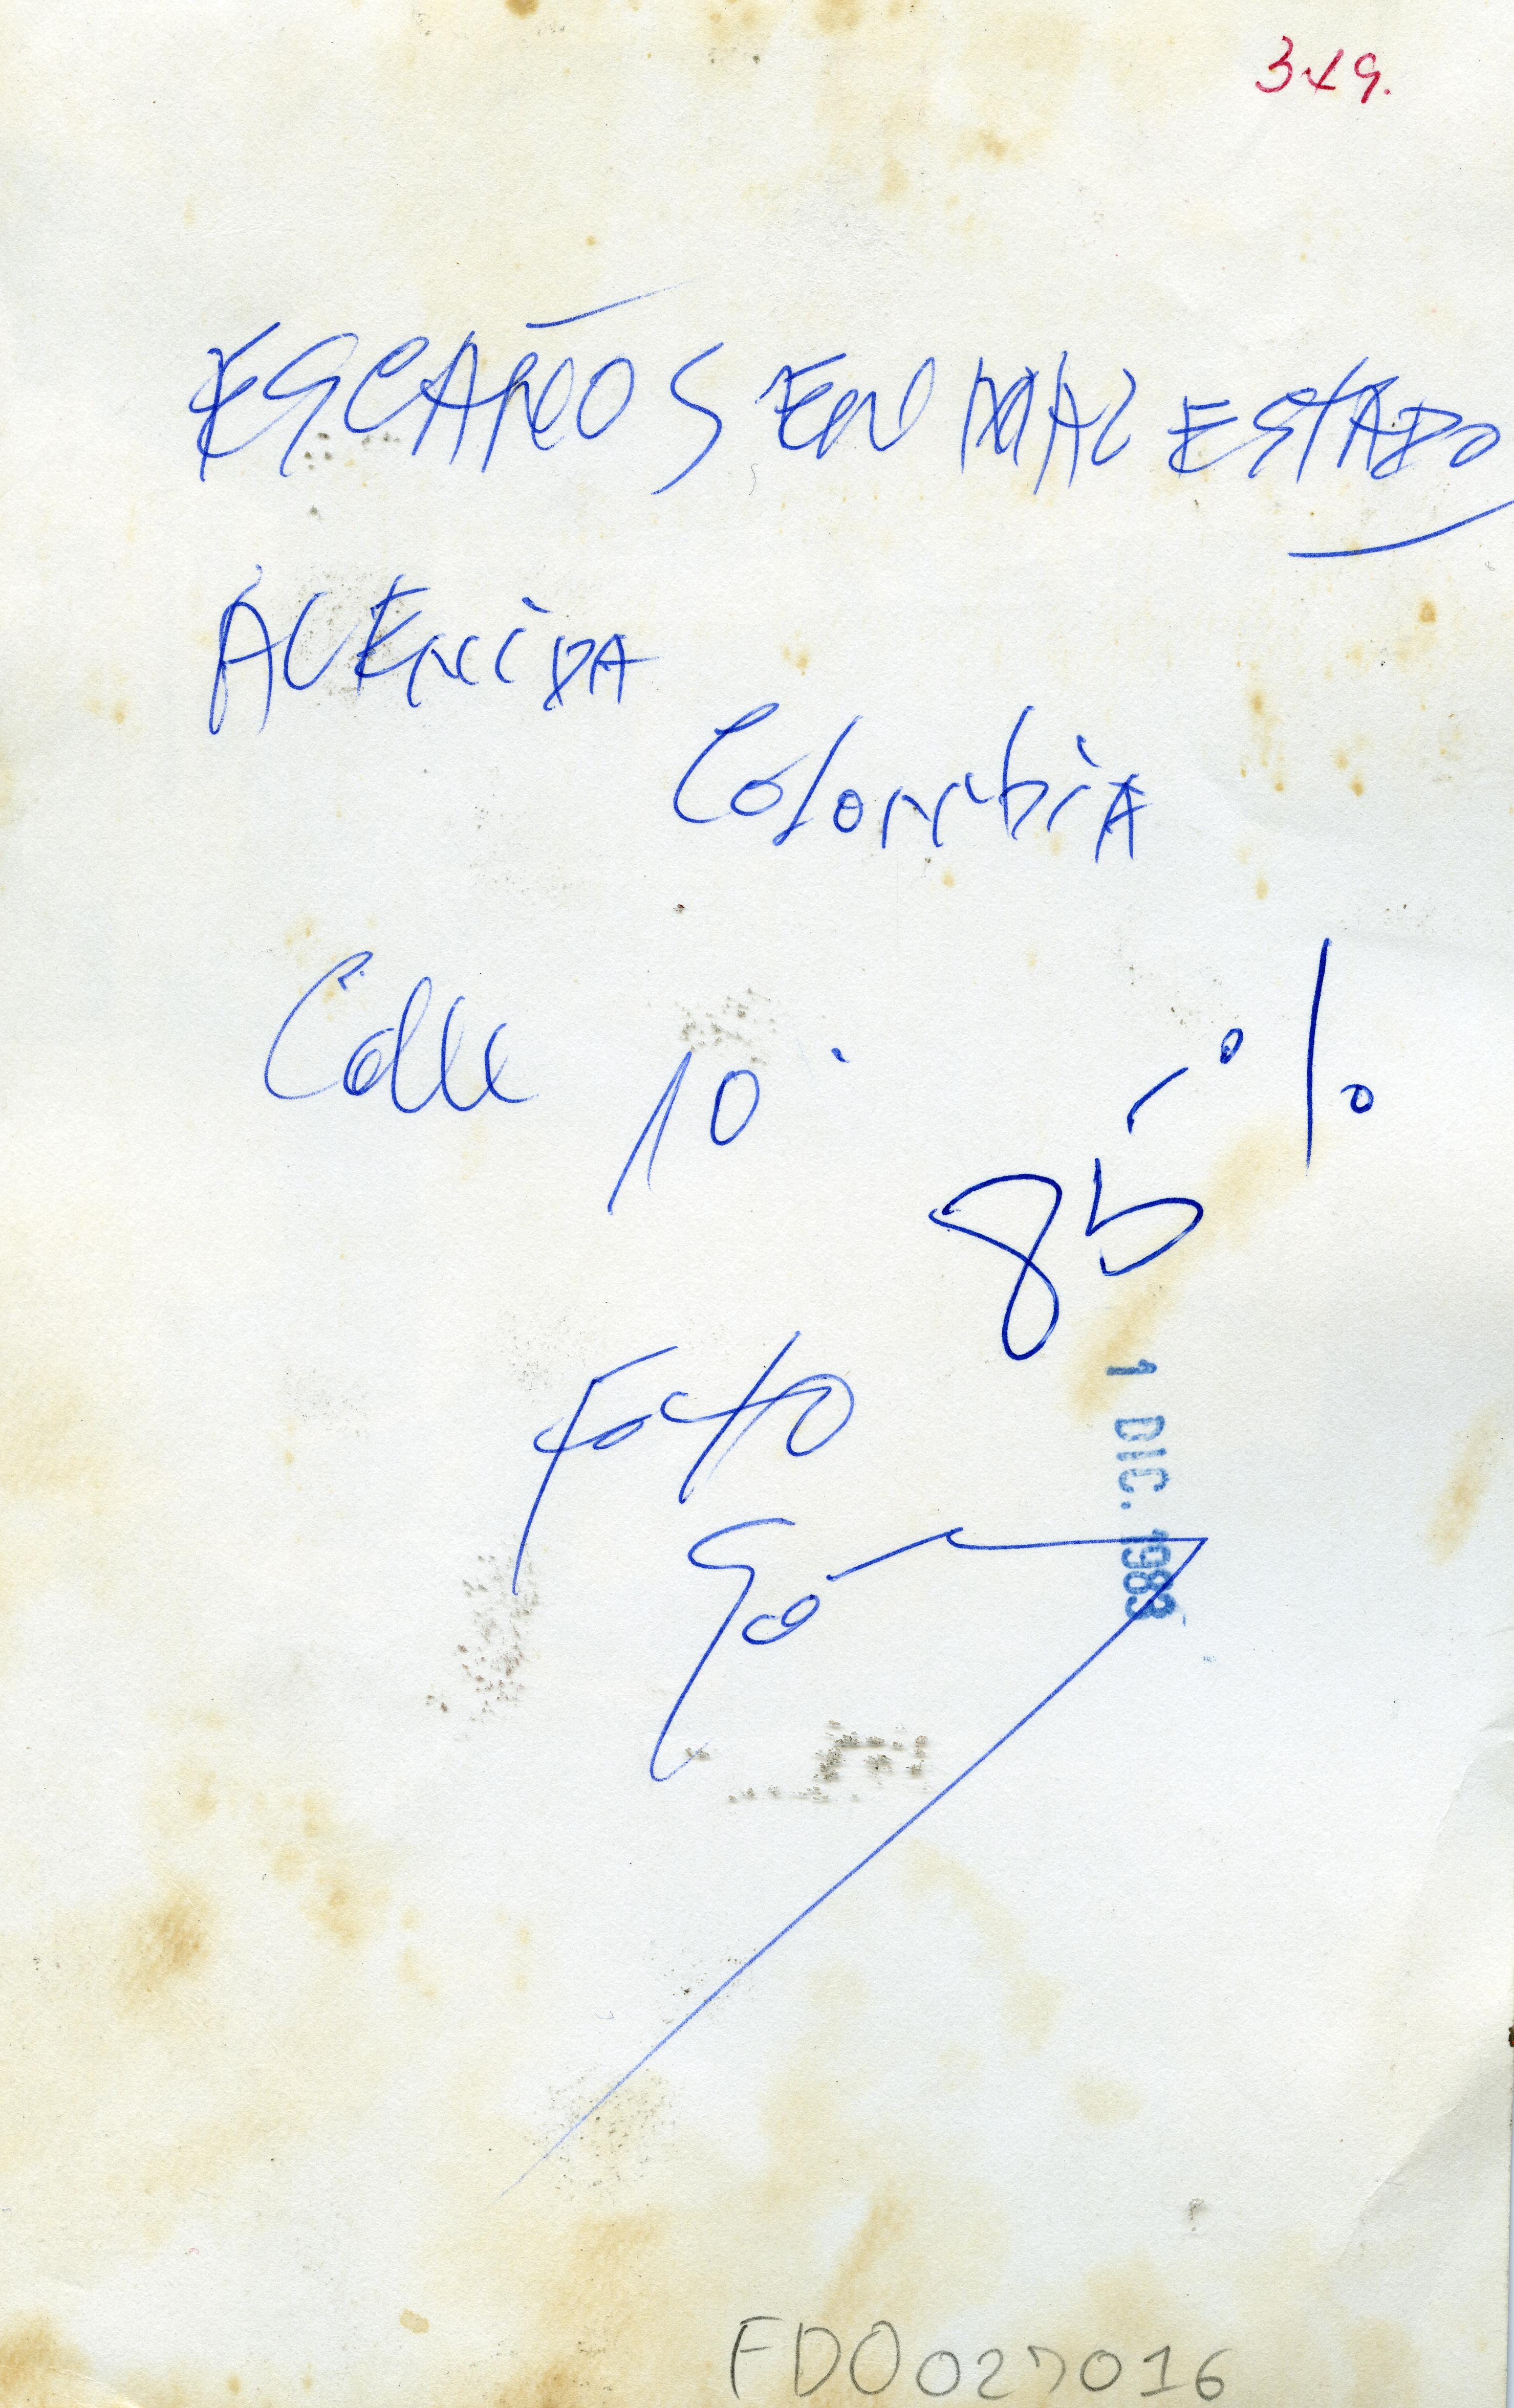 3x9.
ESCAÑOS EN MAL ESTADO
AVENIDA
Colombia
Calle 10
85 %
1 DIC. 1983
Foto
FDO027016